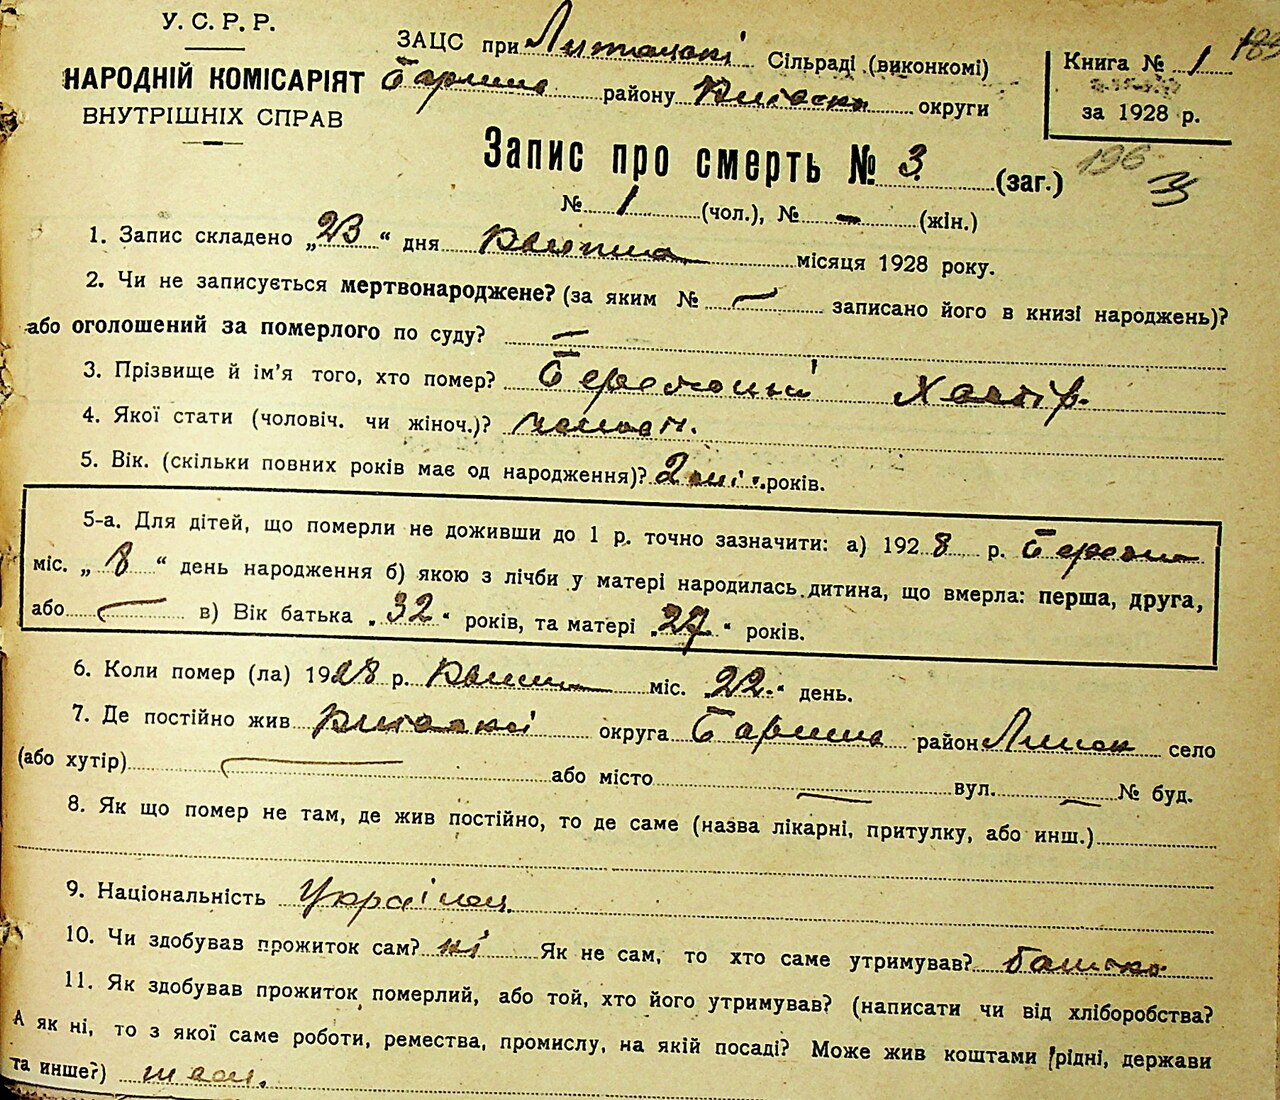 У. С. Р. Р.
НАРОДНІЙ КОМІСАРІЯТ
ВНУТРІШНІХ СПРАВ
ЗАЦС при Сільраді (виконкомі)
району округи
Книга № 1
за 1928 р.
196
Запис про смерть № 3. (заг.)
№ 1 (чол.), № - (жін.)
1. Запис складено „23“ дня квітня місяця 1928 року.
2. Чи не записується мертвонароджене? (за яким № — записано його в книзі народжень)?
або оголошений за померлого по суду? —
3. Прізвище й ім'я того, хто помер?
4. Якої стати (чоловіч. чи жіноч.)?
5. Вік. (скільки повних років має од народження)? років.
5-а. Для дітей, що померли не доживши до 1 р. точно зазначити: а) 1928 р. Березня
міс. „8“ день народження б) якою з лічби у матері народилась дитина, що вмерла: перша, друга,
або — в) Вік батька „32“ років, та матері „27“ років.
6. Коли помер (ла) 1928 р. квітня міс. „22“ день.
7. Де постійно жив округа район село
(або хутір) — або місто — вул. — № буд.
8. Як що помер не там, де жив постійно, то де саме (назва лікарні, притулку, або инш.)
9. Національність Українец
10. Чи здобував прожиток сам? ні Як не сам, то хто саме утримував? батько
11. Як здобував прожиток померлий, або той, хто його утримував? (написати чи від хліборобства?
А як ні, то з якої саме роботи, ремества, промислу, на якій посаді? Може жив коштами рідні, держави
та инше?)